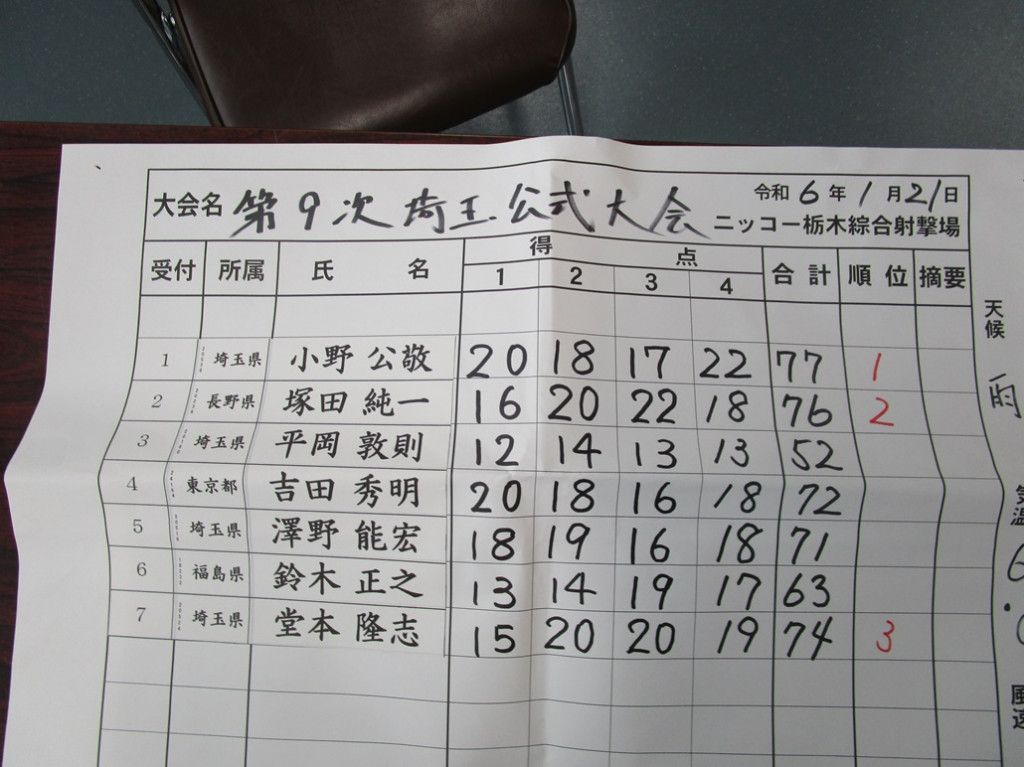 大会名 第9次 埼玉公式大会 令和6年1月21日
ニッコー栃木綜合射撃場
受付 所属 氏名 得点 合計 順位 摘要
1 2 3 4
1 埼玉県 小野 公敬 20 18 17 22 77 1
2 長野県 塚田 純一 16 20 22 18 76 2
3 埼玉県 平岡 敦則 12 14 13 13 52
4 東京都 吉田 秀明 20 18 16 18 72
5 埼玉県 澤野 能宏 18 19 16 18 71
6 福島県 鈴木 正之 13 14 19 17 63
7 埼玉県 堂本 隆志 15 20 20 19 74 3
天候 雨
気温 6.
風速